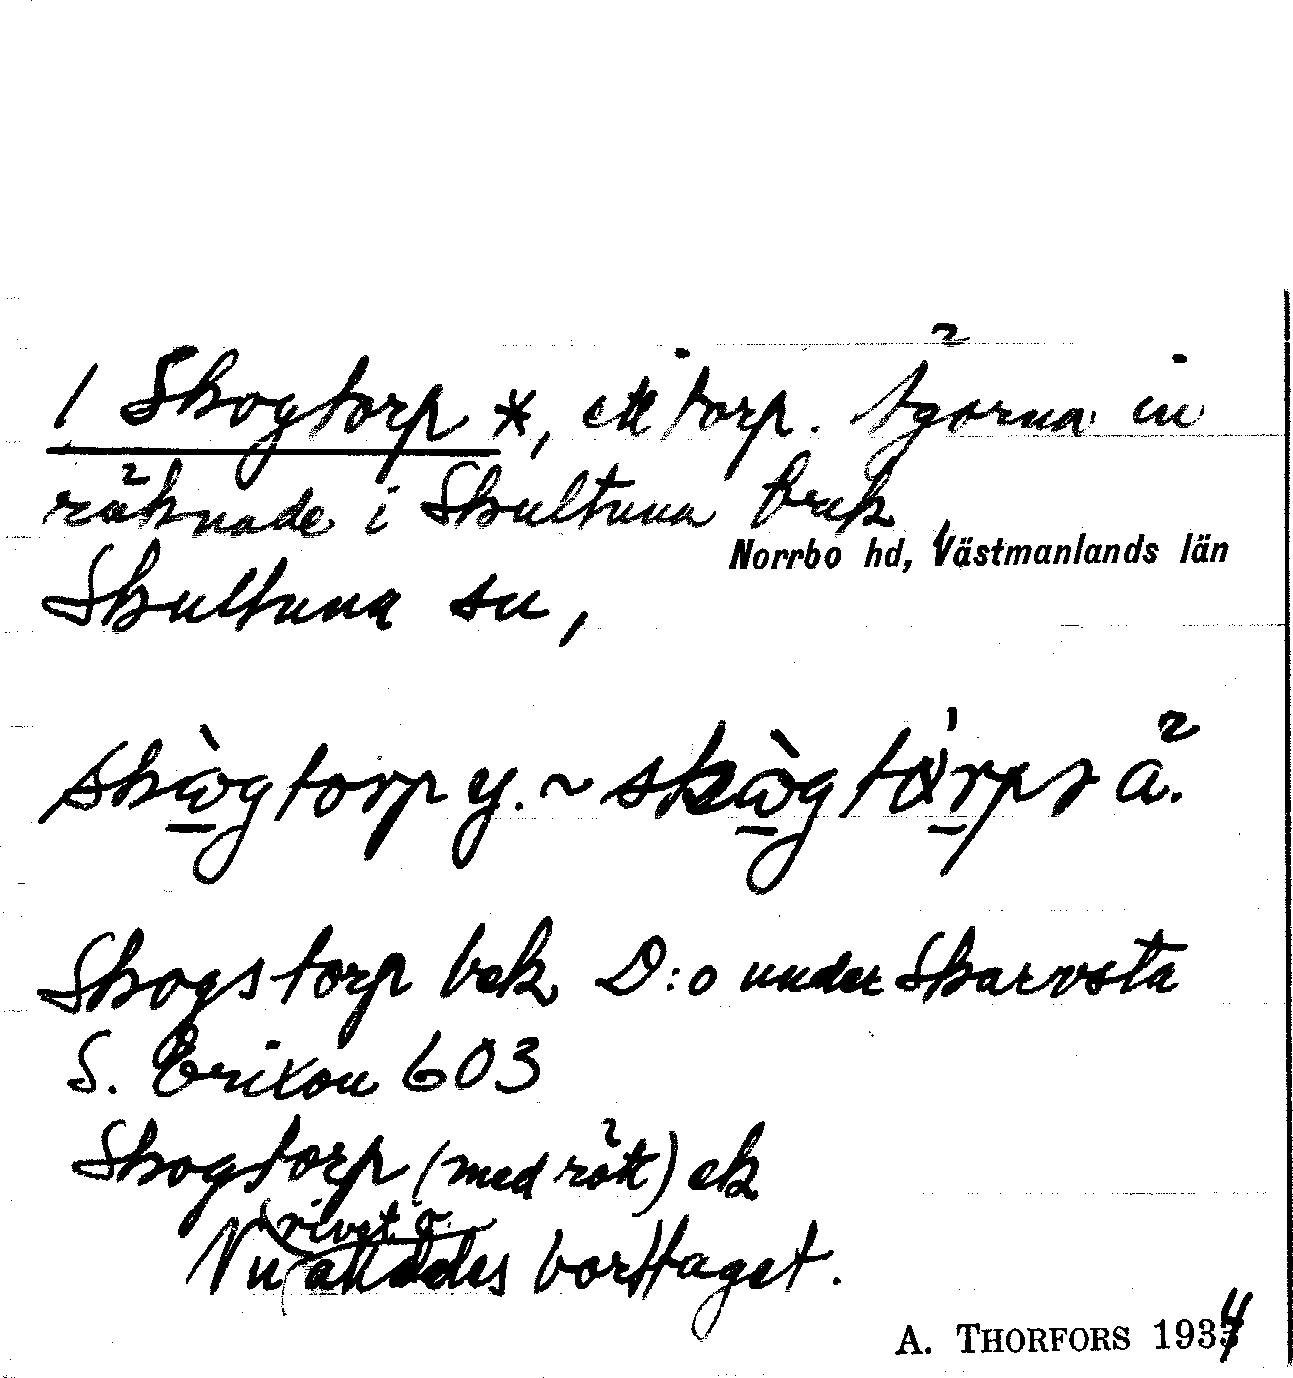 1 Skogtorp *, ett torp. Ägorna in
räknade i Skultuna bruk
Norrbo hd, Västmanlands län
Skultuna sn,
skògtorp y. ~ skògtòrp
Skogstorp bek D:o under Skarvsta
S. Erixon 603
Skogtorp (med rött) ek
Nu rivet o. borttaget.
A. THORFORS 1934